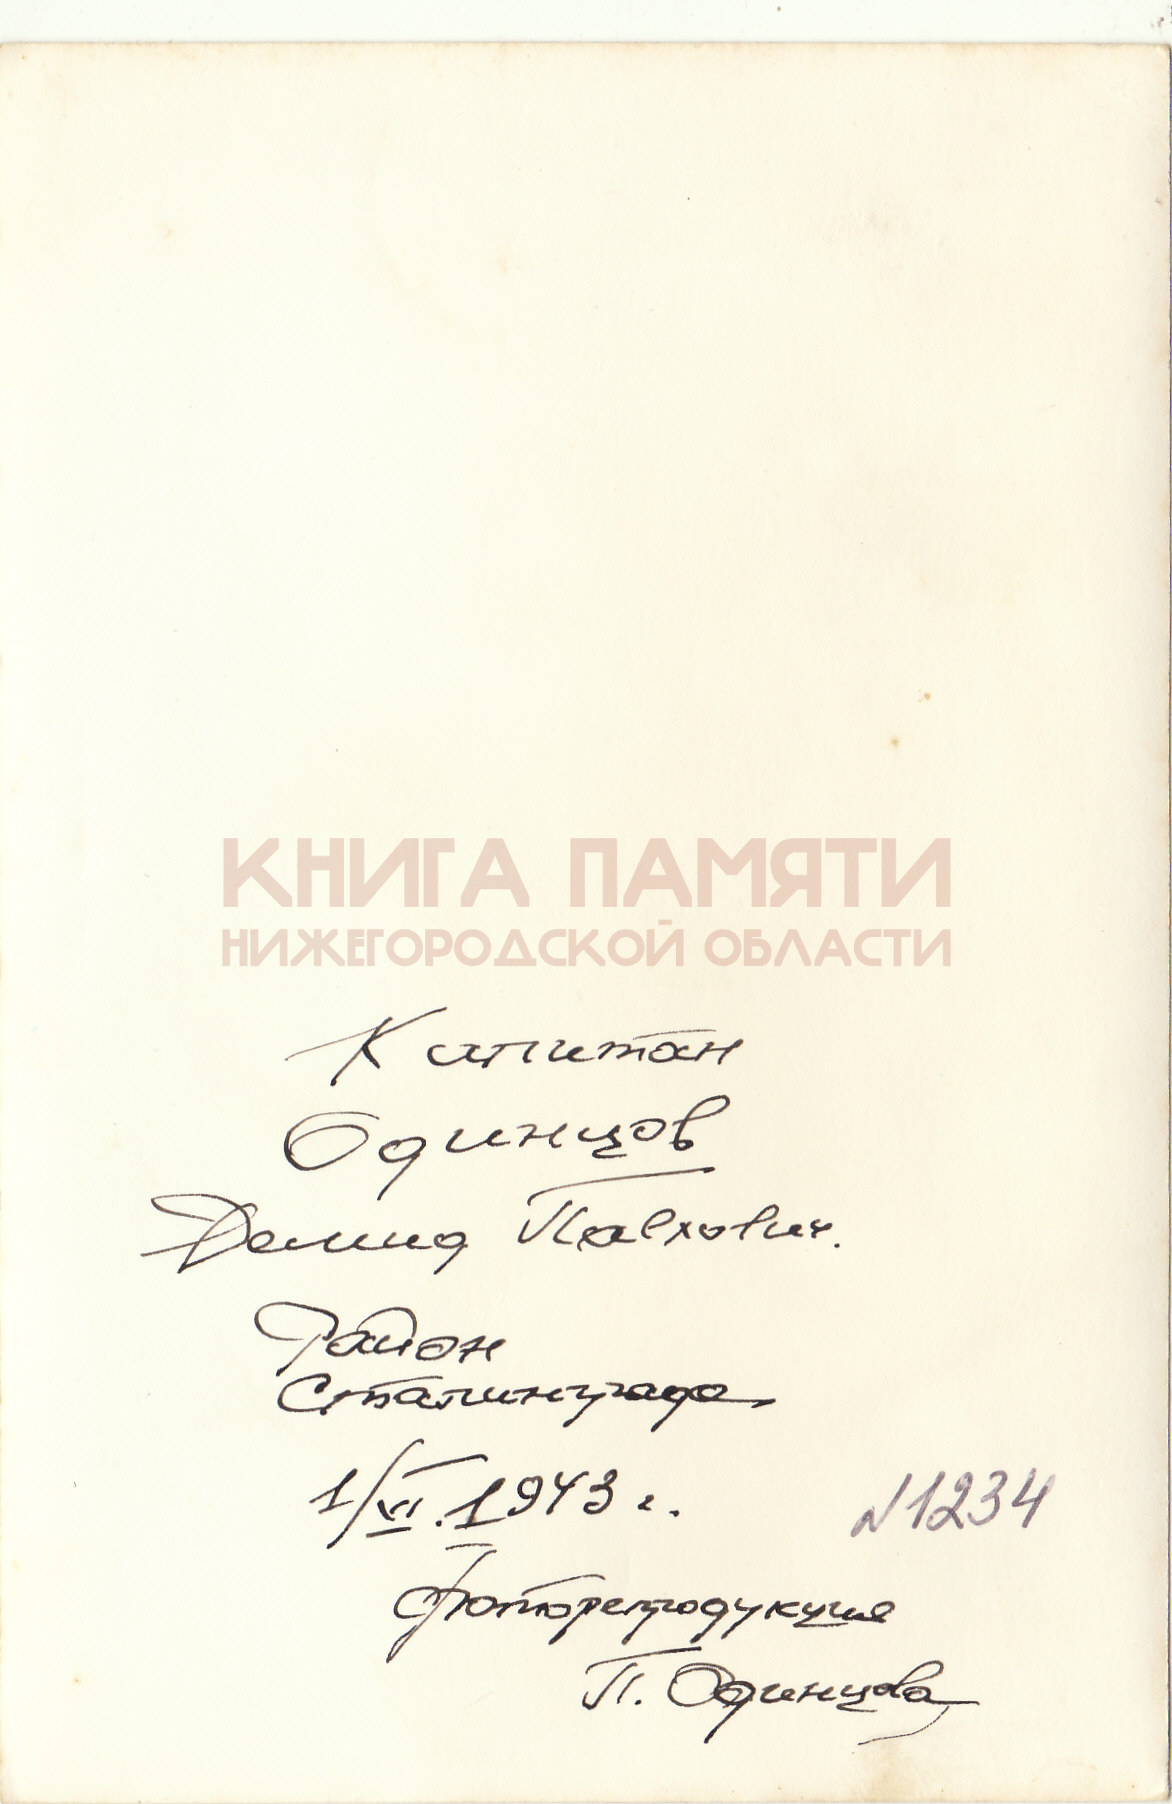 КНИГА ПАМЯТИ
НИЖЕГОРОДСКОЙ ОБЛАСТИ
Капитан
Одинцов
Демид Павлович.
Район
Сталинграда
1/VI.1943 г.
N1234
Фоторепродукция
П. Одинцова